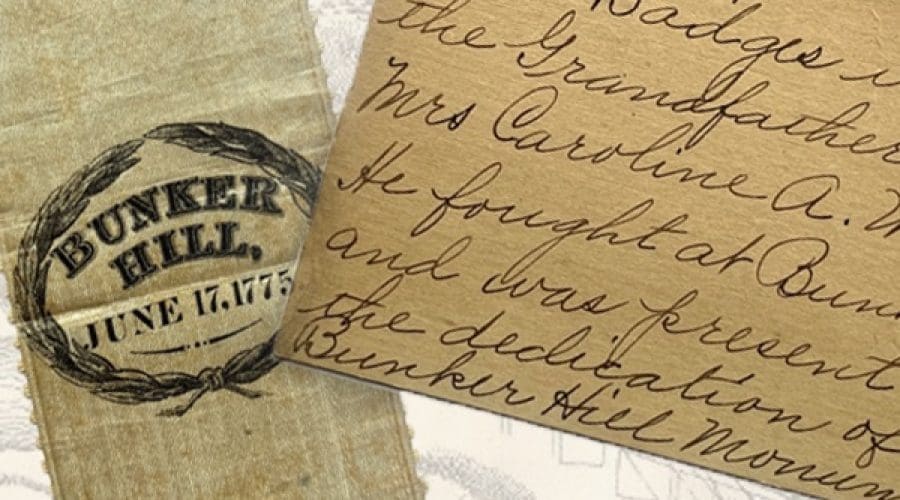 BUNKER
HILL,
JUNE 17, 1775
Badges
the Grandfather
Mrs Caroline A.
He fought at
and was present
the dedication of
Bunker Hill